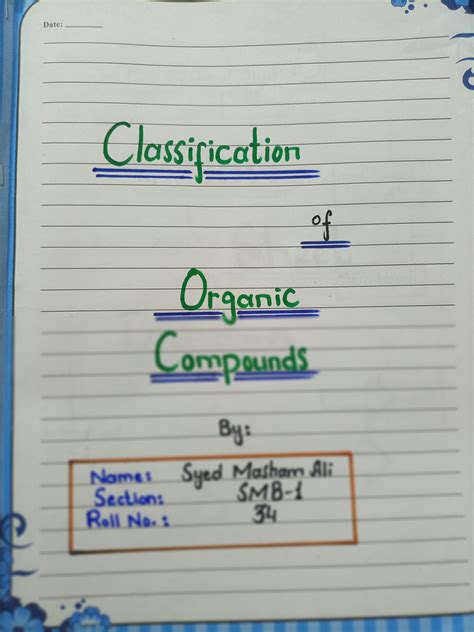 Date: ________
Classification
of
Organic
Compounds
By:
Name: Syed Masham Ali
Section: SMB-1
Roll No.: 34